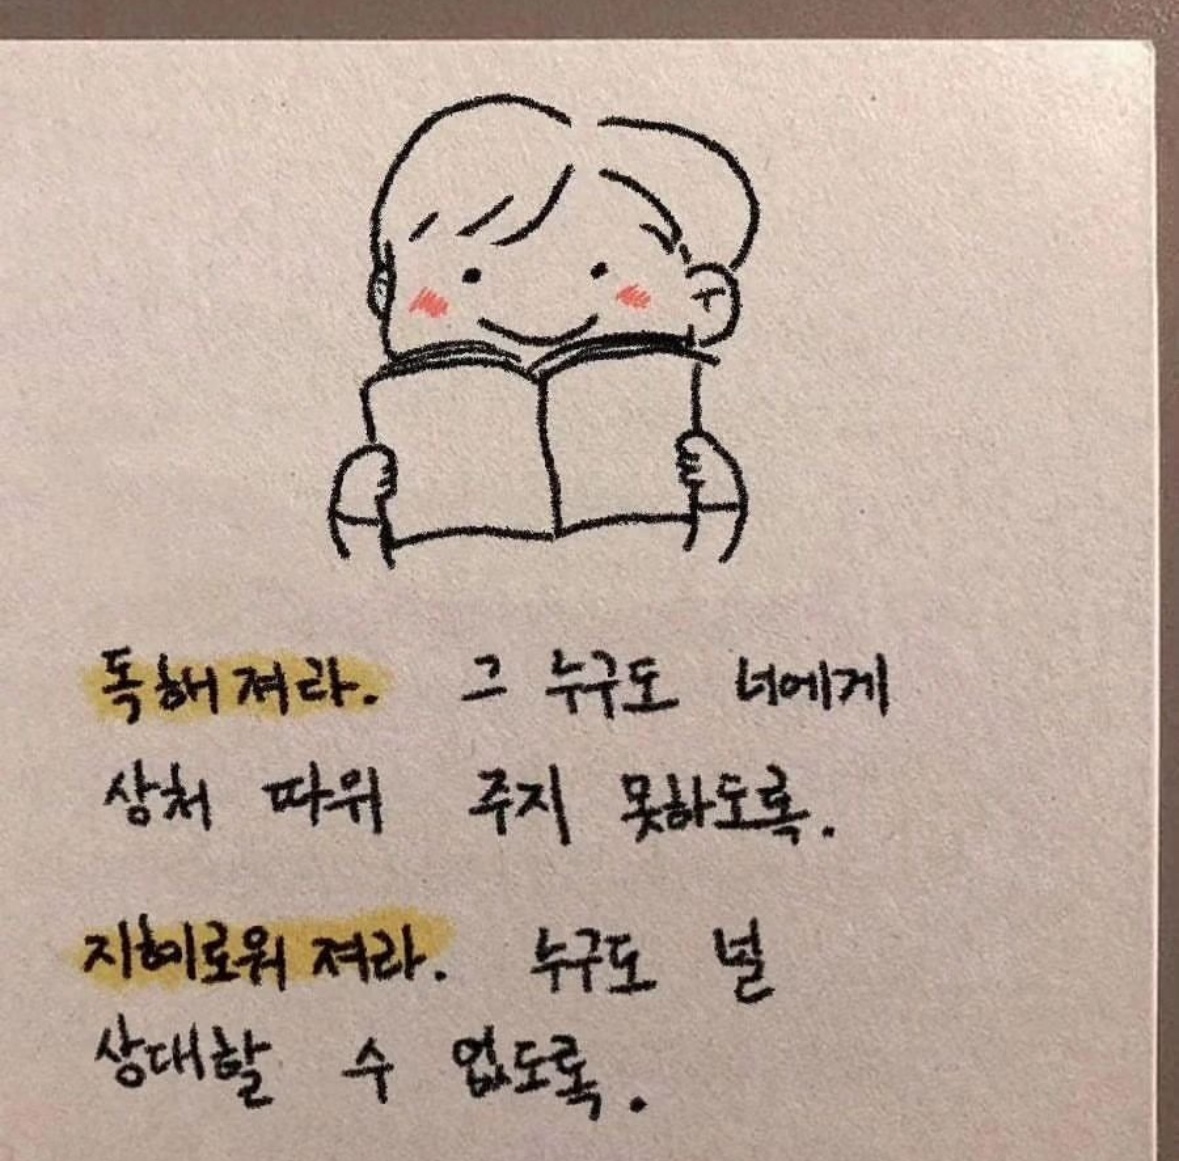 독해져라. 그 누구도 너에게
상처 따위 주지 못하도록.
지혜로워져라. 누구도 널
상대할 수 없도록.